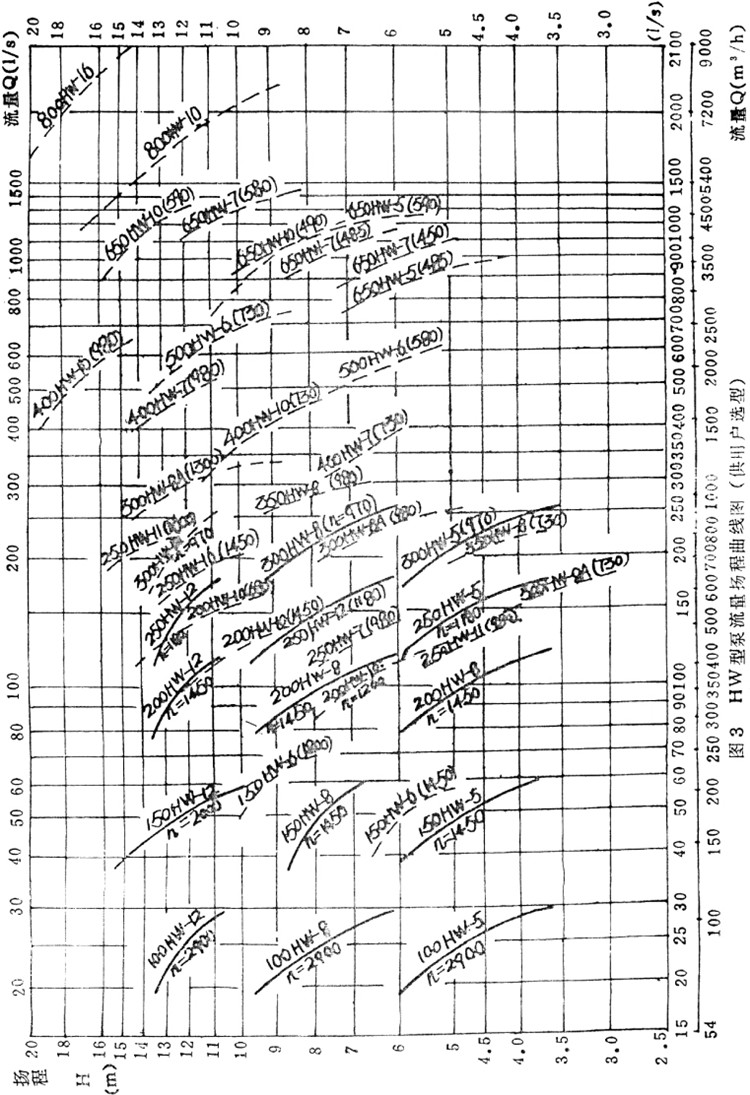 流量Q(l/s)
20 18 16 15 14 13 12 11 10 9 8 7 6 5 4.5 4.0 3.5 3.0 (l/s)
流量Q(m³/h)
2100 2000 1500 1000 900 800 700 600 500 400 350 300 250 200 150 100 90 80 70 60 50 40 30 25 20 15
9000 7200 5400 4500 3500 2500 2000 1500 1000 800 700 600 500 400 350 300 250 200 150 100 54
1500 1000 800 600 500 400 300 200 100 80 60 50 40 30 20
800HW-16
800HW-10
650HW-10(590)
650HW-7(580)
650HW-10(490)
650HW-5(590)
650HW-7(485)
650HW-7(450)
650HW-5(485)
400HW-10(980)
500HW-6(730)
500HW-6(580)
400HW-7(980)
400HW-10(730)
400HW-7(730)
300HW-8A(1300)
350HW-8(980)
300HW-8(n=970)
300HW-8A(980)
300HW-5(970)
350HW-8(730)
n=970
250HW-10(1450)
250HW-12
200HW-10(1450)
250HW-12(1180)
250HW-7(980)
250HW-5
n=1180
250HW-11(980)
350HW-8A(730)
200HW-12
n=1450
200HW-8
n=1450
n=1200
200HW-8
n=1450
150HW-12
n=2000
150HW-6(1800)
150HW-8
n=1450
150HW-6(1450)
150HW-5
n=1450
100HW-12
n=2900
100HW-8
n=2900
100HW-5
n=2900
扬程 H (m)
20 18 16 15 14 13 12 11 10 9 8 7 6 5 4.5 4.0 3.5 3.0 2.5
图3 HW型泵流量扬程曲线图(供用户选型)